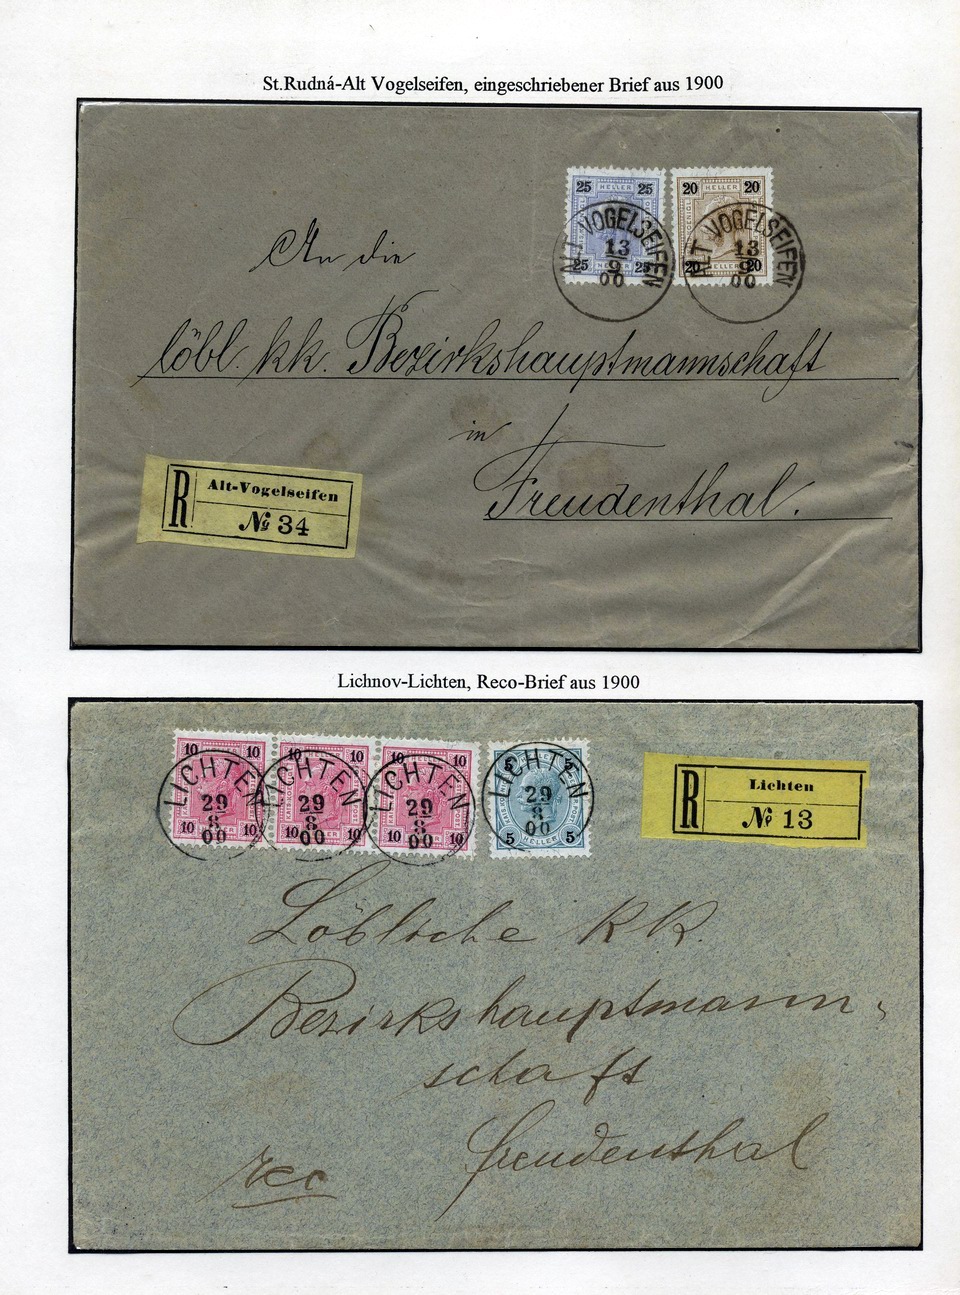 St.Rudná-Alt Vogelseifen, eingeschriebener Brief aus 1900
25 HELLER 25
20 HELLER 20
ALT VOGELSEIFEN
13
9
00
ALT VOGELSEIFEN
13
9
00
25 HELLER 25
20 HELLER 20
An die
löbl. kk. Bezirkshauptmannschaft
in
Freudenthal.
R Alt-Vogelseifen
№ 34
Lichnov-Lichten, Reco-Brief aus 1900
10 10
10 10
10 10
5 5
LICHTEN
29
8
00
LICHTEN
29
8
00
LICHTEN
29
8
00
LICHTEN
29
8
00
10 HELLER 10
10 10
10 10
5 HELLER 5
R Lichten
№ 13
Löbliche KK.
Bezirkshauptmann-
schaft
Freudenthal
rec